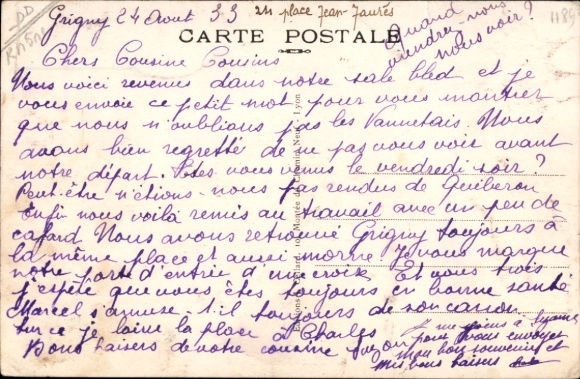 Grigny 24 Aout 33
24 place Jean-Jaurès
1189
CARTE POSTALE
Quand
viendrez-vous
nous voir?
Chers Cousine Cousins
Nous voici revenus dans notre sale bled et je
vous envoie ce petit mot pour vous montrer
que nous n'oublions pas les Vannetais. Nous
avons bien regretté de ne pas vous voir avant
notre départ. Etes vous venus le vendredi soir?
Peut-être n'étions-nous pas rendus de Quiberon
Enfin nous voilà remis au travail avec un peu de
cafard. Nous avons retrouvé Grigny toujours à
la même place et aussi morne. Je vous marque
notre porte d'entrée d'une croix. Et vous trois
j'espère que vous êtes toujours en bonne santé
Marcel s'amuse-t-il toujours de son canon
Sur ce je laisse la place à Charles
Bons baisers de votre cousine Suzon
Je me joins à Suzanne
pour vous envoyer
mon bon souvenir et
mes bons baisers
Montée des Carmes
Lyon